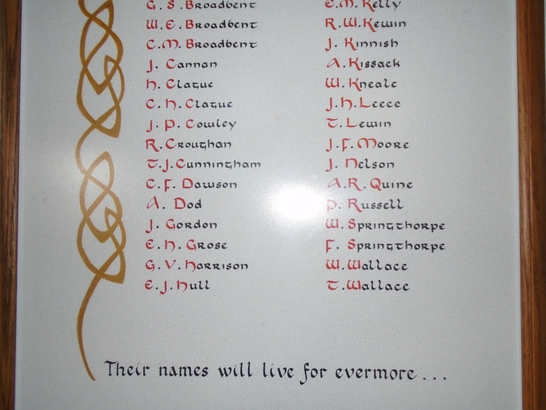 G. S. Broadbent
W. E. Broadbent
C. M. Broadbent
J. Cannan
H. Clague
C. H. Clague
J. P. Cowley
R. Croughan
T. J. Cunningham
C. F. Dawson
A. Dod
J. Gordon
E. H. Grose
G. V. Harrison
E. J. Hull
E. M. Kelly
R. W. Kewin
J. Kinnish
A. Kissack
W. Kneale
J. H. Leece
T. Lewin
J. F. Moore
J. Nelson
A. R. Quine
P. Russell
W. Springthorpe
F. Springthorpe
W. Wallace
T. Wallace
Their names will live for evermore...